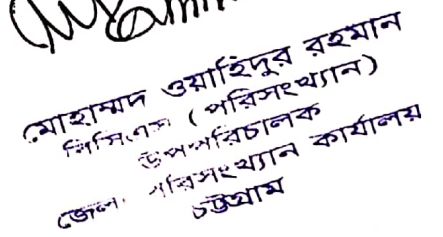 মোহাম্মদ ওয়াহিদুর রহমান
বিসিএস (পরিসংখ্যান)
উপপরিচালক
জেলা পরিসংখ্যান কার্যালয়
চট্টগ্রাম